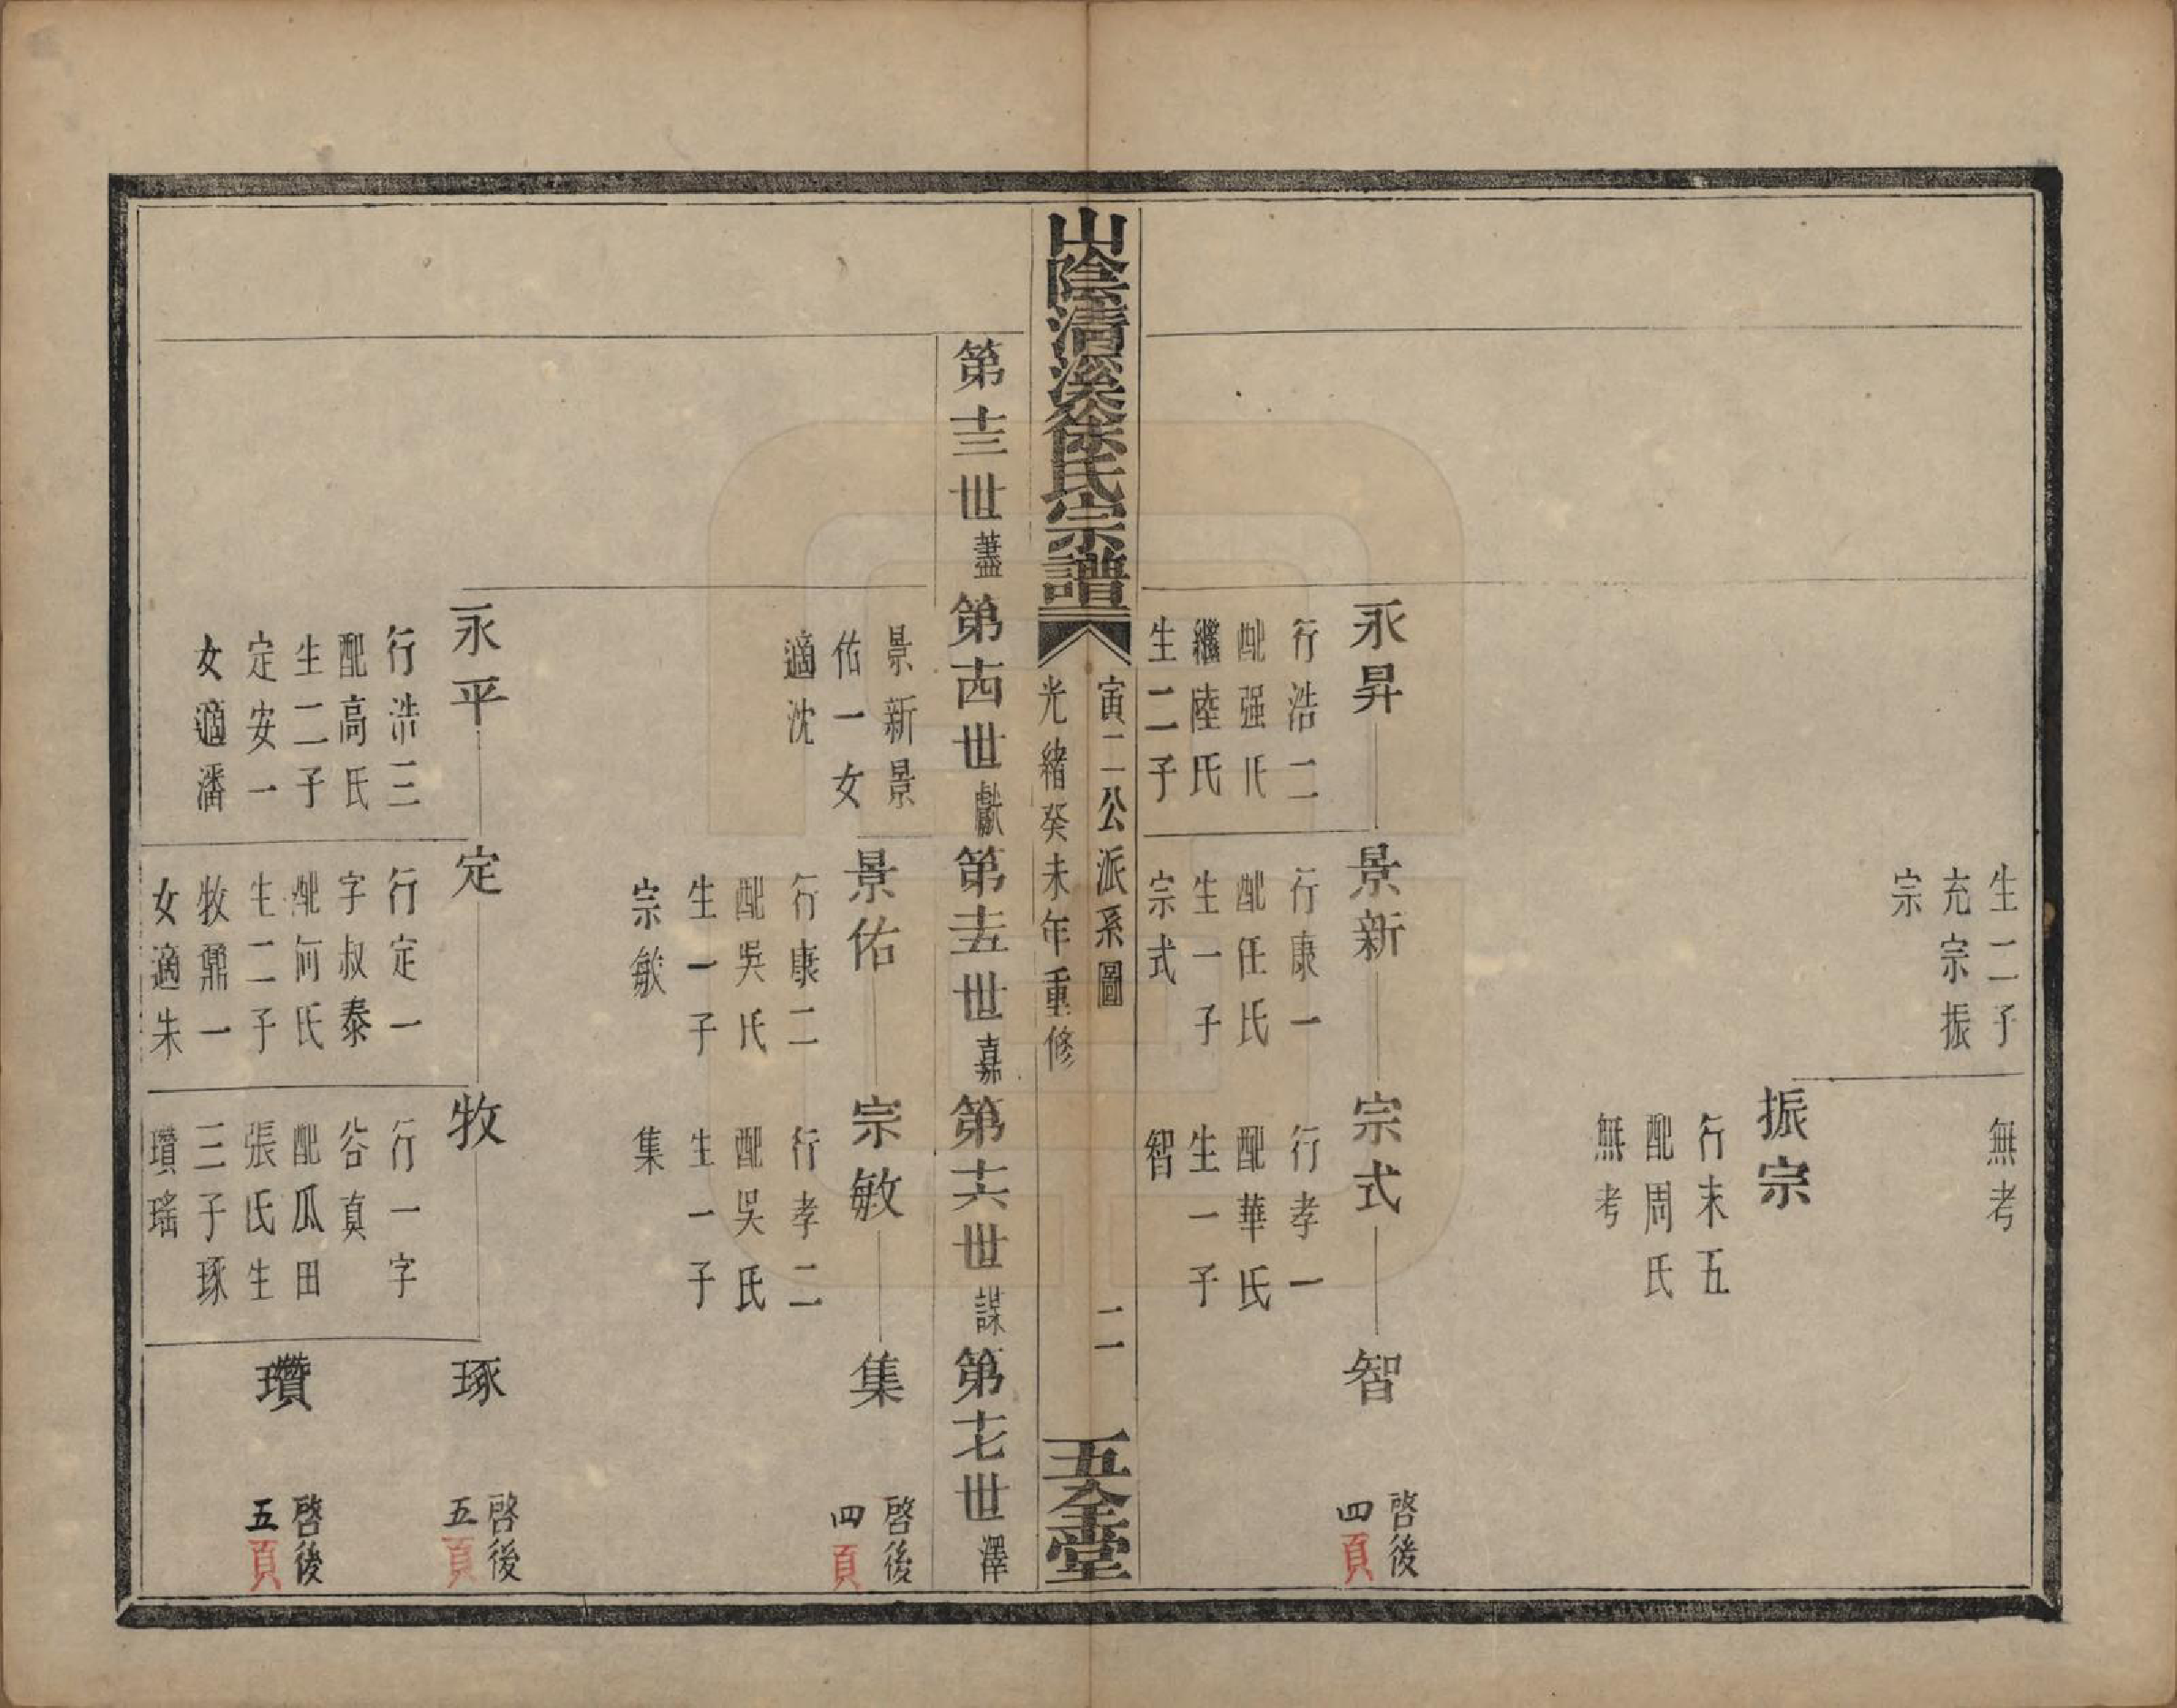 生二子
充宗振
宗
無考
振宗
行末五
配周氏
無考
永昇
行浩二
配强氏
繼陸氏
生二子
景新
行康一
配任氏
生一子
宗式
宗式
行孝一
配華氏
生一子
智
智
啓後
四頁
山陰清溪徐氏宗譜
寅二公派系圖
二
光緒癸未年重修
五全堂
第十三世藎
第十四世獻
第十五世嘉
第十六世謀
第十七世澤
景新景
佑一女
適沈
景佑
行康二
配吳氏
生一子
宗敏
宗敏
行孝二
配吳氏
生一子
集
集
啓後
四頁
永平
行浩三
配高氏
生二子
定安一
女適潘
定
行定一
字叔泰
配何氏
生二子
牧鼎一
女適朱
牧
行一字
谷真
配瓜田
張氏生
三子琢
瓚瑤
琢
啓後
五頁
瓚
啓後
五頁